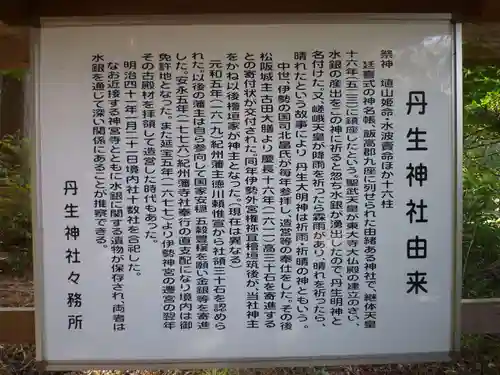 丹生神社由来
祭神　埴山姫命・水波賣命ほか十六柱
延喜式の神名帳、飯高郡九座に列せられた由緒ある神社で、継体天皇
十六年(五二三)に鎮座したという。聖武天皇が東大寺大仏殿の建立のさい、
水銀の産出をこの神に祈ると忽ち水銀が湧出したので、丹生明神と
名付けた。又、嵯峨天皇が降雨を祈ったら霖雨があり、晴れを祈ったら、
晴れたという故事により、丹生大明神は祈雨・祈晴の神ともいう。
中世、伊勢の国司北畠氏が毎年参拝し、造営等の奉仕をした。その後
松阪城主古田大膳より慶長十六年(一六一一)高三十石を寄進する
との寄付状が交付された。同年伊勢外宮権祢宜檜垣筑後が、当社神主
をかね以後檜垣家が神主となった。(現在は異なる)
元和五年(一六一九)紀州藩主徳川頼惟宣から社領三十石を認めら
れた、以後の藩主は自ら参向して国家安穏、五穀豊穣を願い金銀等を寄進
した。安永五年(一七七六)紀州藩寺社奉行の直支配になり境内は御
免許地となった。また延宝五年(一六七七)より伊勢神宮の遷宮の翌年
その古殿材を拝領して造営した時代もあった。
明治四十一年一月二十一日境内社十数社を合祀した。
なお近接する神宮寺とともに水銀に関する遺物が保存され、両者は
水銀を通じて深い関係にあることが推察できる。
丹生神社々務所